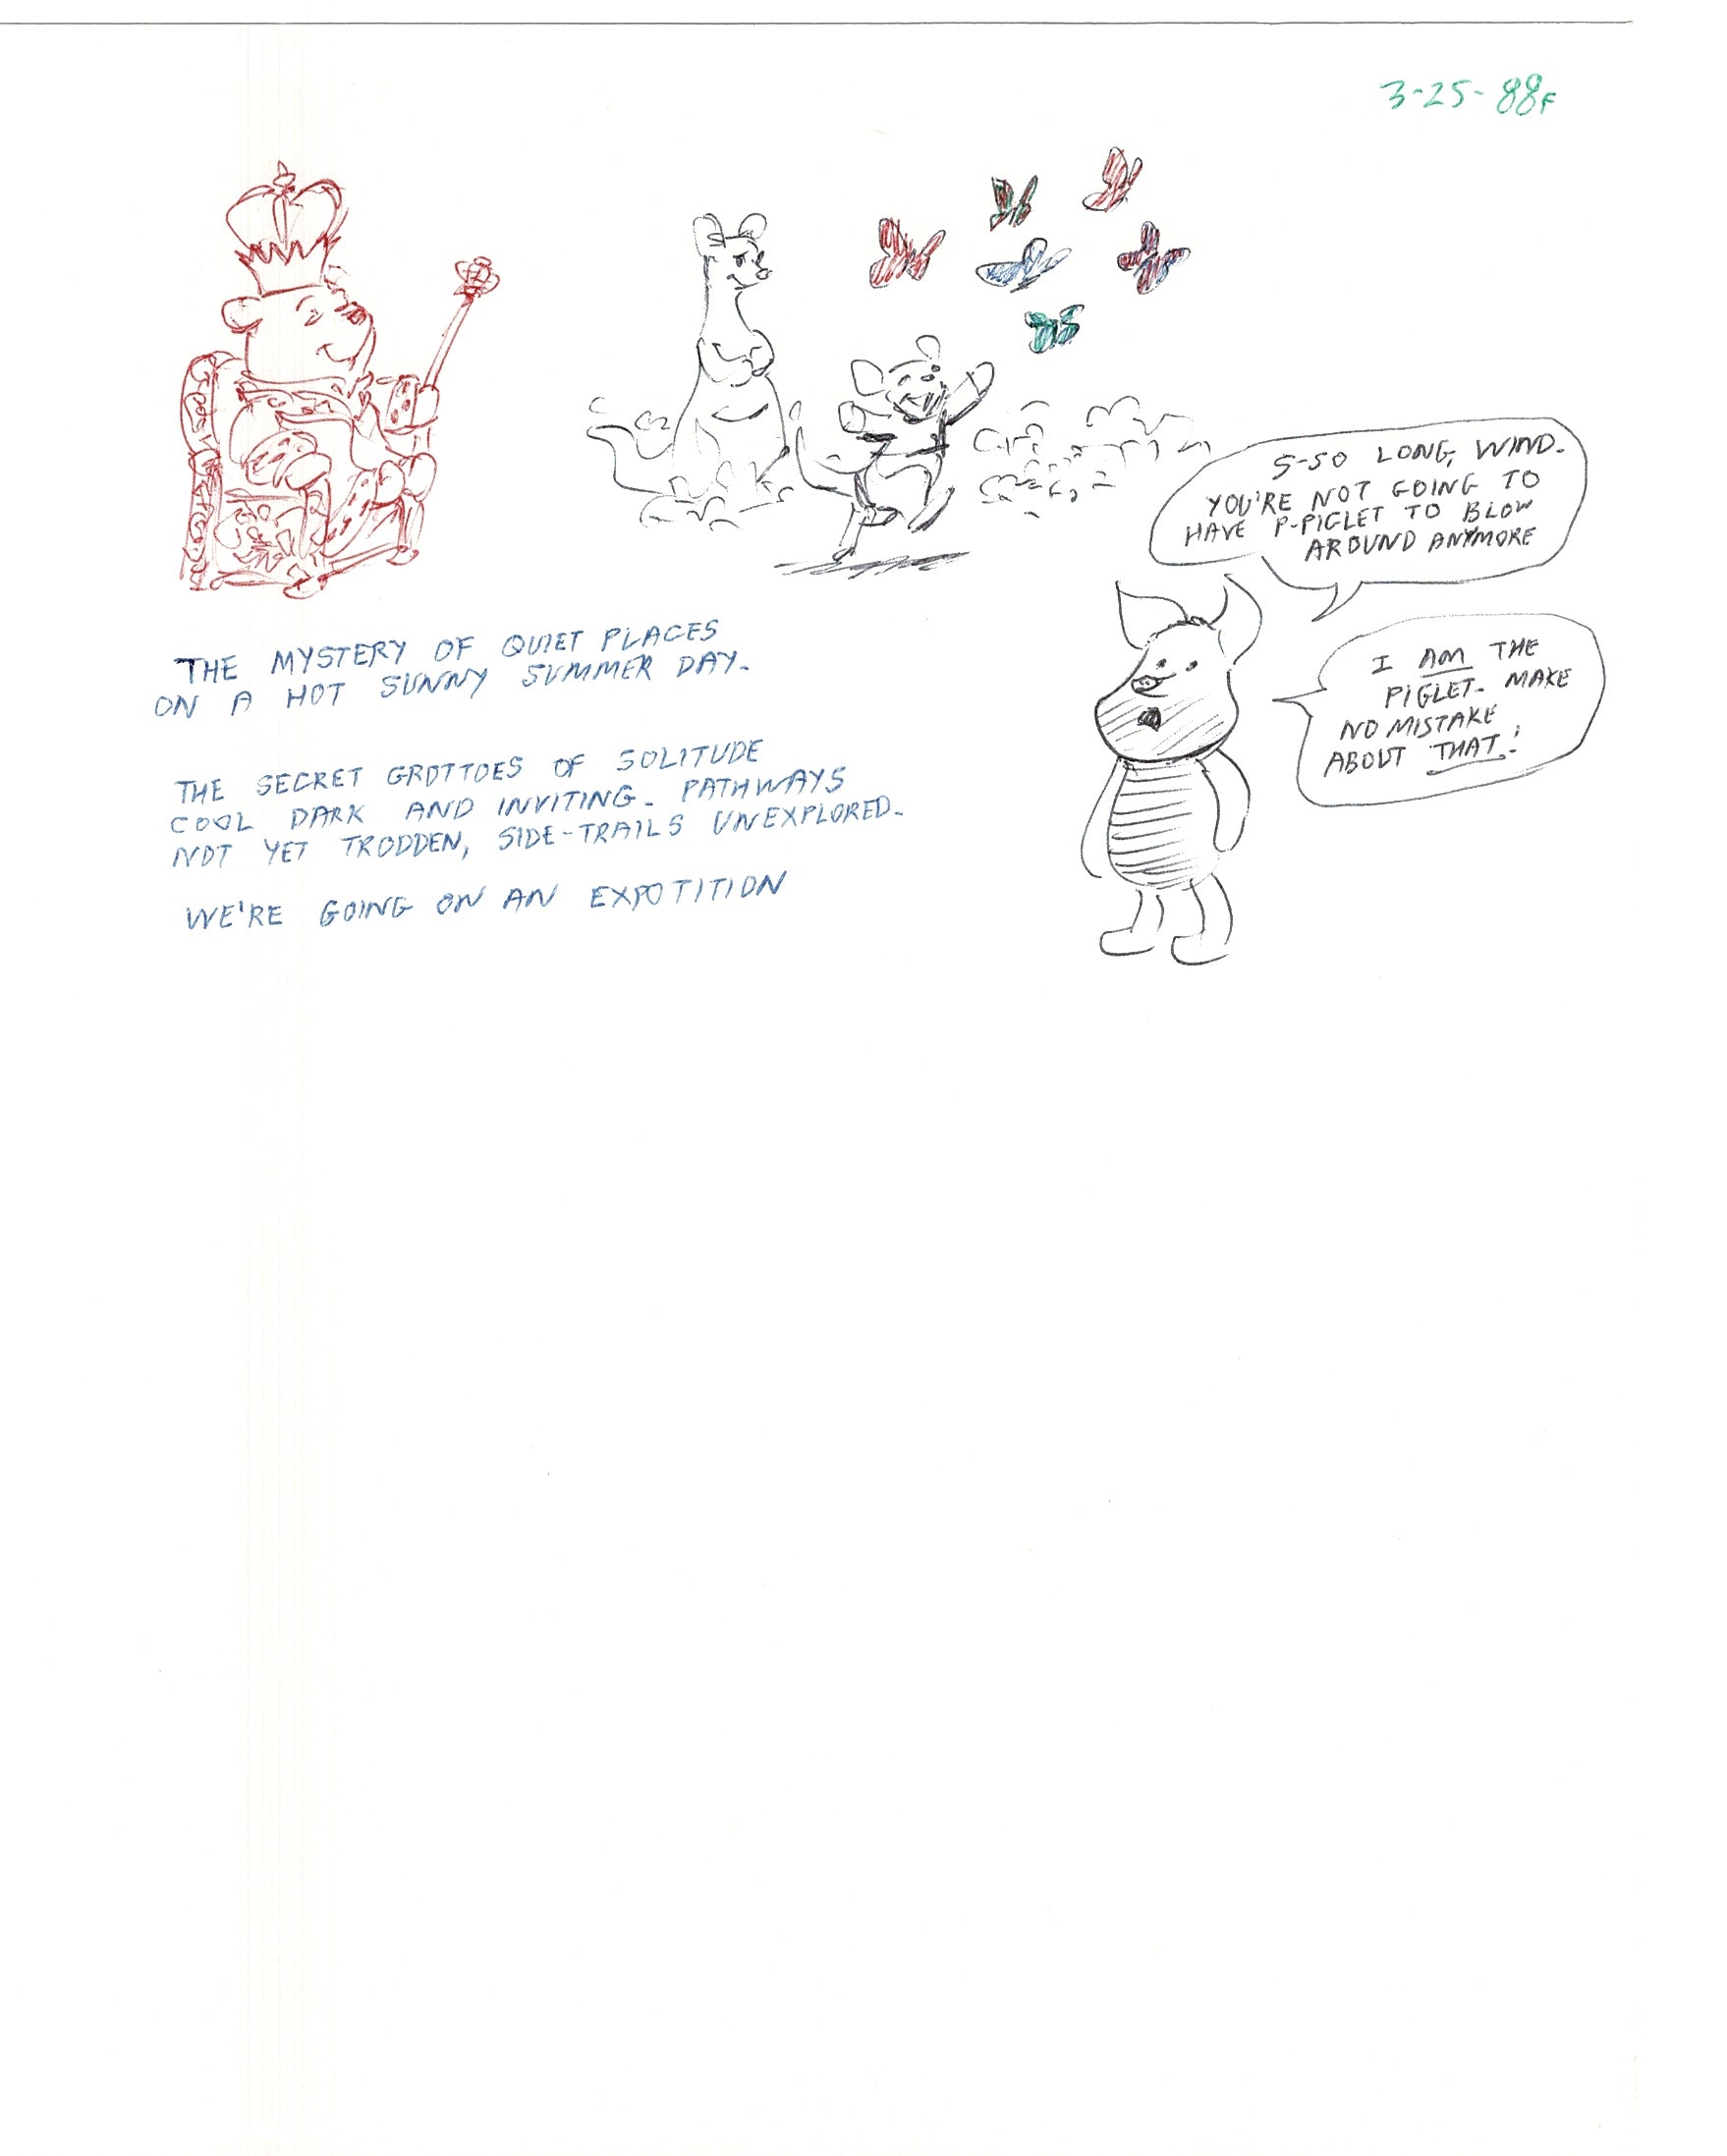 3-25-88F
S-SO LONG, WIND.
YOU'RE NOT GOING TO
HAVE P-PIGLET TO BLOW
AROUND ANYMORE
I AM THE
PIGLET. MAKE
NO MISTAKE
ABOUT THAT!
THE MYSTERY OF QUIET PLACES
ON A HOT SUNNY SUMMER DAY.
THE SECRET GROTTOES OF SOLITUDE
COOL DARK AND INVITING. PATHWAYS
NOT YET TRODDEN, SIDE-TRAILS UNEXPLORED.
WE'RE GOING ON AN EXPOTITION